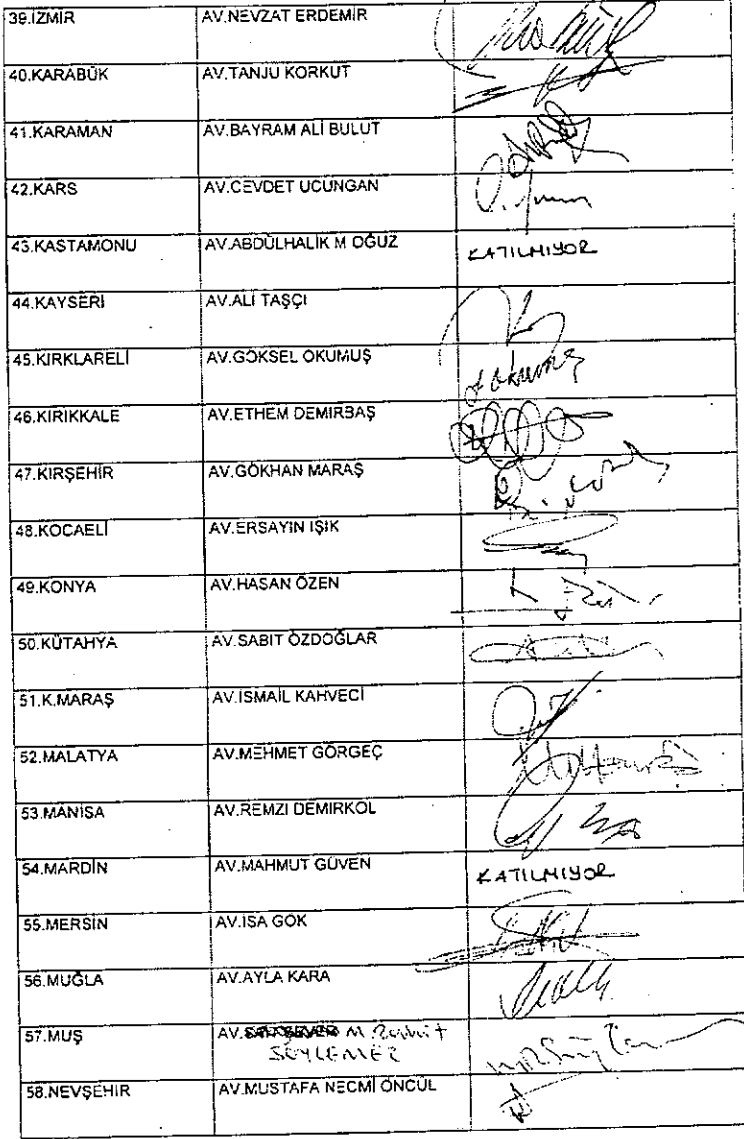 39.İZMİR AV.NEVZAT ERDEMİR
40.KARABÜK AV.TANJU KORKUT
41.KARAMAN AV.BAYRAM ALİ BULUT
42.KARS AV.CEVDET UCUNGAN
43.KASTAMONU AV.ABDÜLHALİK M OĞUZ KATILMIYOR
44.KAYSERİ AV.ALİ TAŞÇI
45.KIRKLARELİ AV.GÖKSEL OKUMUŞ
46.KIRIKKALE AV.ETHEM DEMİRBAŞ
47.KIRŞEHİR AV.GÖKHAN MARAŞ
48.KOCAELİ AV.ERSAYIN IŞIK
49.KONYA AV.HASAN ÖZEN
50.KÜTAHYA AV.SABİT ÖZDOĞLAR
51.K.MARAŞ AV.İSMAİL KAHVECİ
52.MALATYA AV.MEHMET GÖRGEÇ
53.MANİSA AV.REMZİ DEMİRKOL
54.MARDİN AV.MAHMUT GÜVEN KATILMIYOR
55.MERSİN AV.İSA GÖK
56.MUĞLA AV.AYLA KARA
57.MUŞ AV. M.
SEYLEMEZ
58.NEVŞEHİR AV.MUSTAFA NECMİ ÖNCÜL